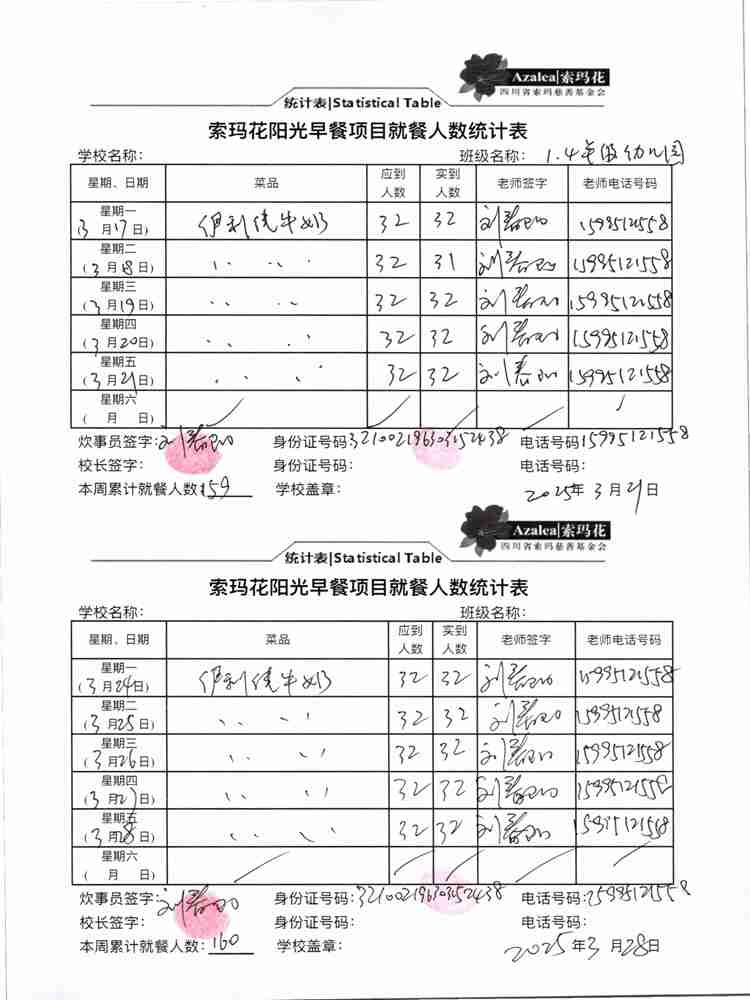 Azalea|索玛花
四川省索玛慈善基金会
统计表|Statistical Table
索玛花阳光早餐项目就餐人数统计表
学校名称： 班级名称： 1.4年级幼儿园
星期、日期 菜品 应到人数 实到人数 老师签字 老师电话号码
星期一 (3月17日) 伊利纯牛奶 32 32 15995121558
星期二 (3月18日) 〃 〃 32 31 15995121558
星期三 (3月19日) 〃 〃 32 32 15995121558
星期四 (3月20日) 〃 〃 32 32 15995121558
星期五 (3月21日) 〃 〃 32 32 15995121558
星期六 ( 月 日)
炊事员签字： 身份证号码： 电话号码15995121558
校长签字： 身份证号码： 电话号码：
本周累计就餐人数：159 学校盖章： 2025年3月21日
Azalea|索玛花
四川省索玛慈善基金会
统计表|Statistical Table
索玛花阳光早餐项目就餐人数统计表
学校名称： 班级名称：
星期、日期 菜品 应到人数 实到人数 老师签字 老师电话号码
星期一 (3月24日) 伊利纯牛奶 32 32 15995121558
星期二 (3月25日) 〃 〃 32 32 15995121558
星期三 (3月26日) 〃 〃 32 32 15995121558
星期四 (3月27日) 〃 〃 32 32 15995121558
星期五 (3月28日) 〃 〃 32 32 15995121558
星期六 ( 月 日)
炊事员签字： 身份证号码： 电话号码：15995121558
校长签字： 身份证号码： 电话号码：
本周累计就餐人数：160 学校盖章： 2025年3月28日